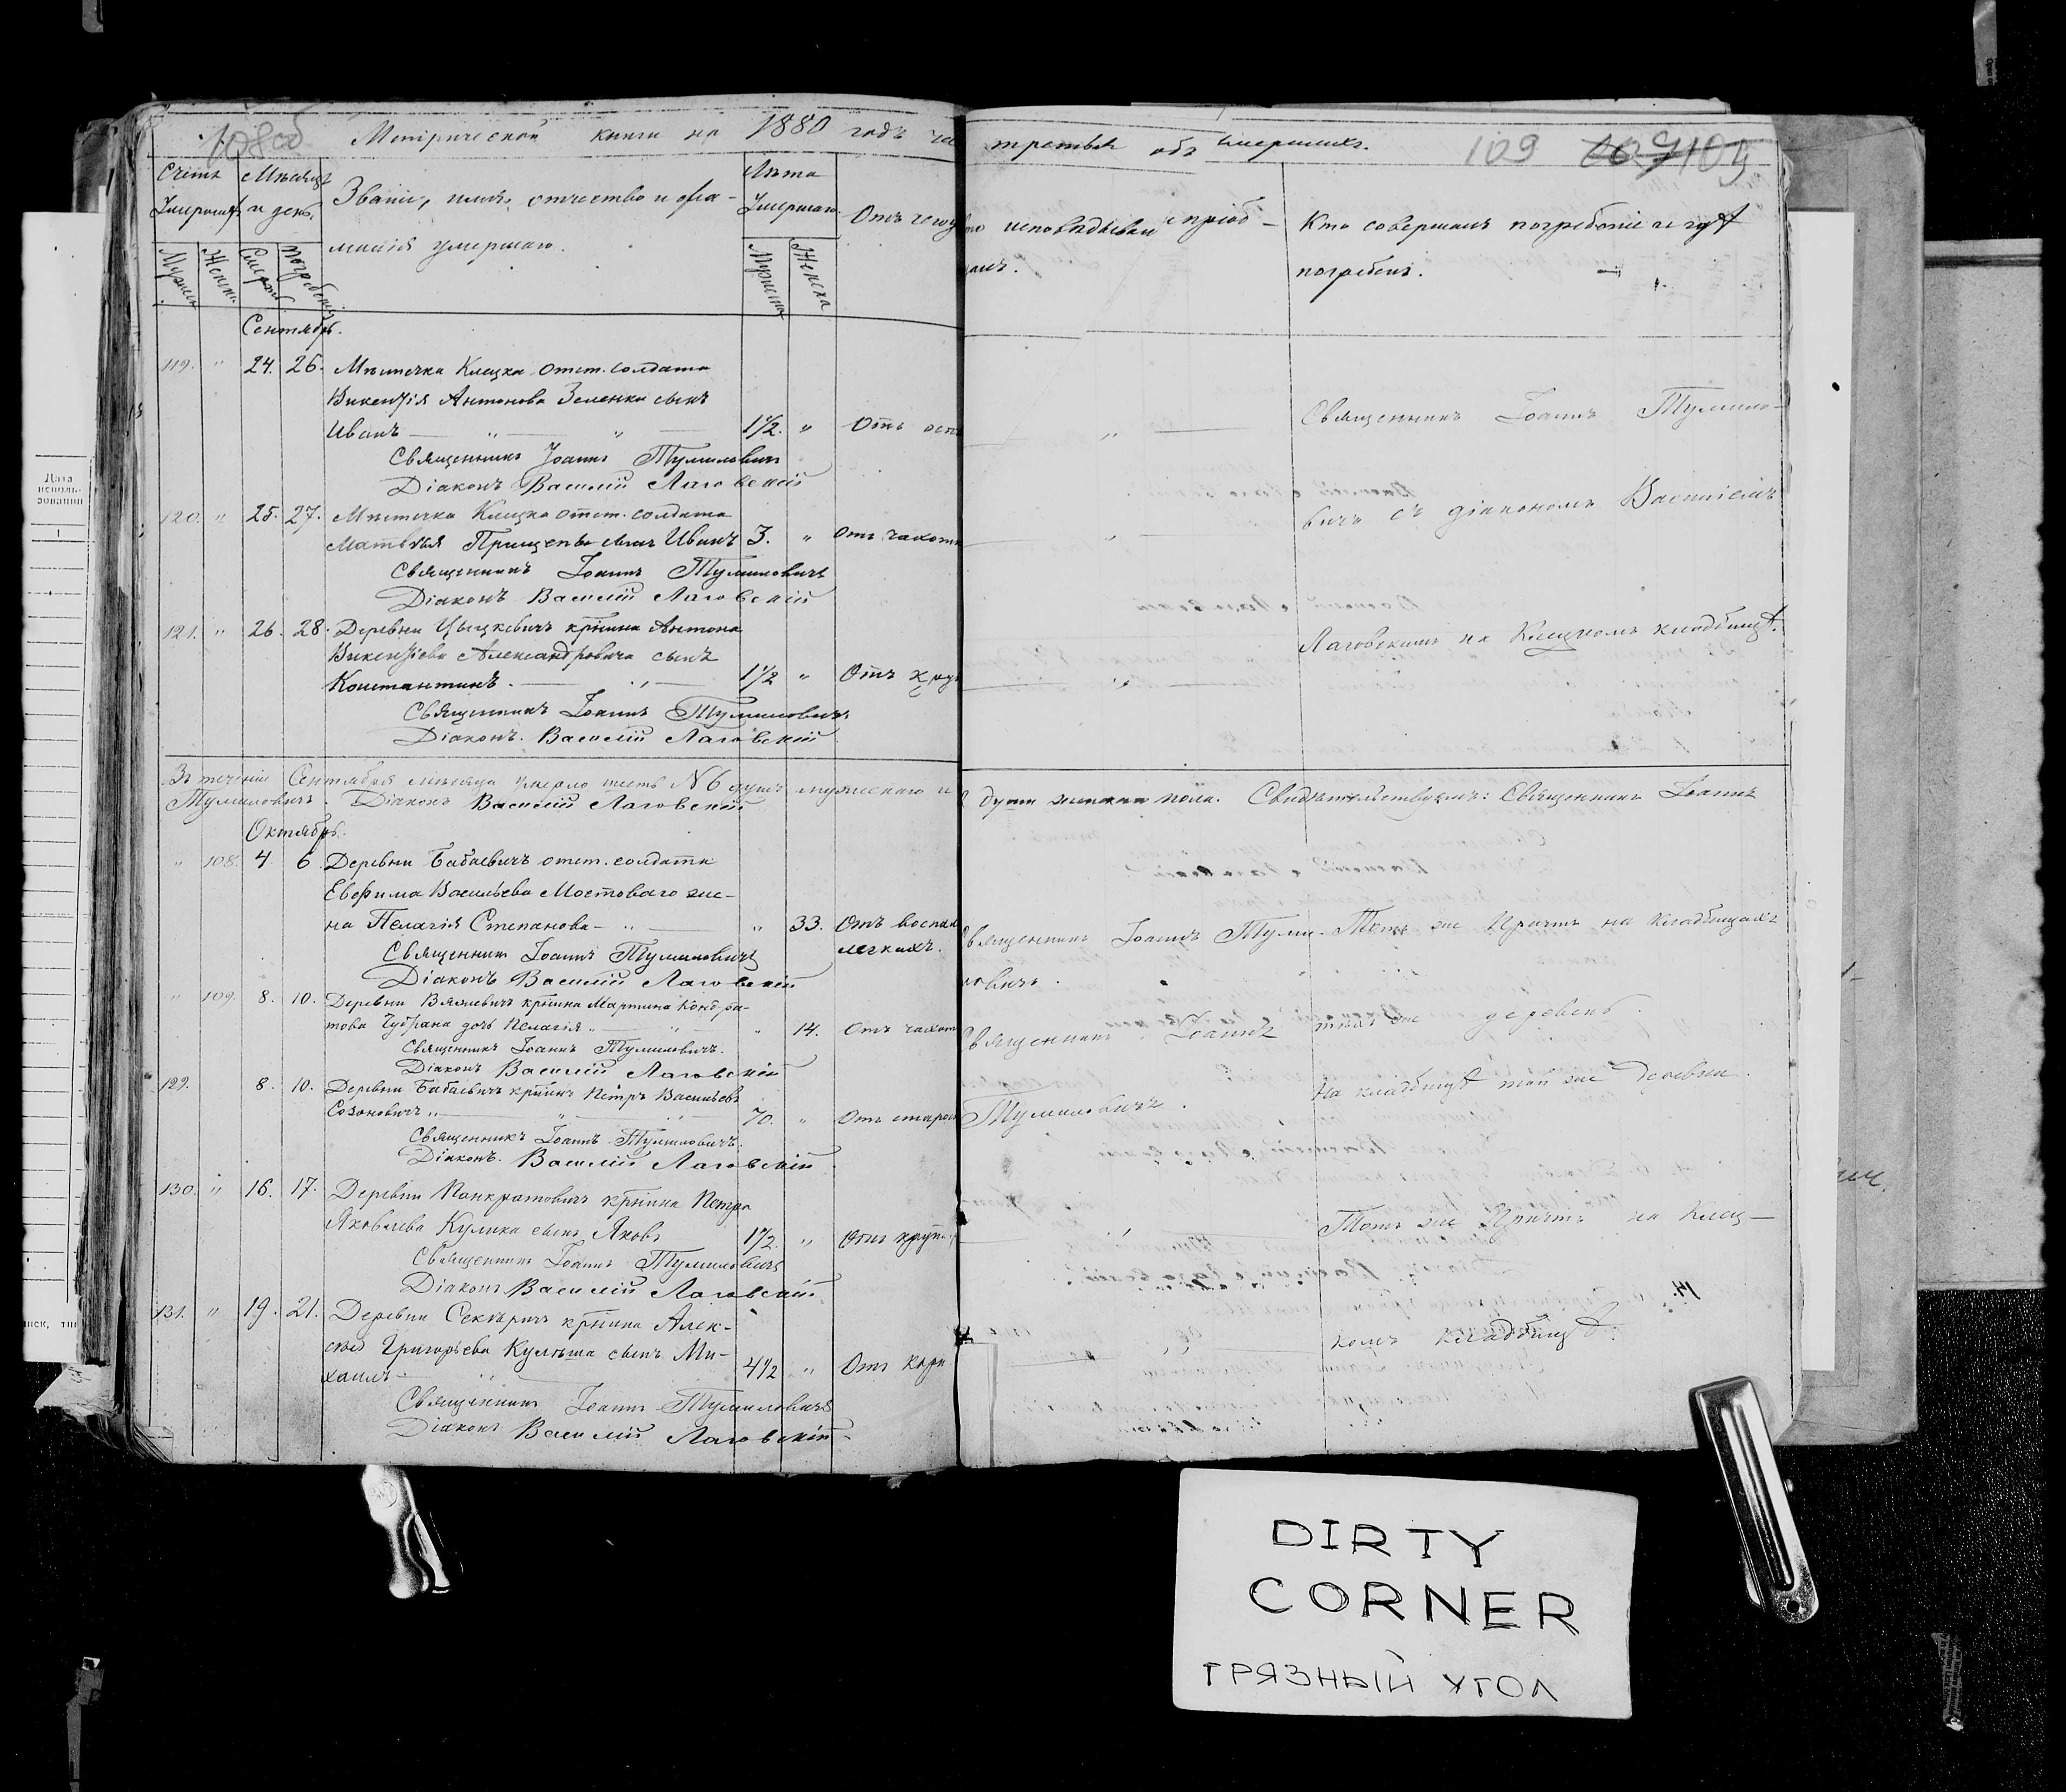 108об
Метрической книги на 1880 годъ ча
Счетъ Умершихъ
Мѣсяцъ и день.
Званіе, имя, отчество и фа-
милія умершаго.
Лѣта Умершаго
Отъ чего у
Мужеска
Женска
Смерти
Погребенія
Мужеска
Женска
Сентябрь.
119. " 24. 26. Мѣстечка Клецка отст. солдата
Викентія Антонова Зеленки сынъ
Иванъ — " — " — 1½. " Отъ осп
Священникъ Іоаннъ Тумиловичъ
Діаконъ Василій Лаговскій
120. " 25. 27. Мѣстечка Клецка отст. солдата
Матвѣя Прищепы сынъ Иванъ 3. " Отъ чахотк
Священникъ Іоаннъ Тумиловичъ
Діаконъ Василій Лаговскій
121. " 26. 28. Деревни Цыцкевичъ крѣтина Антона
Викентіева Александровича сынъ
Константинъ. — " — 1½ " Отъ кру
Священникъ Іоаннъ Тумиловичъ
Діаконъ. Василій Лаговскій
Въ теченіи Сентября мѣсяца умерло шесть N6 душъ мужескаго и
Тумиловичъ. Діаконъ Василій Лаговскій
Октябрь.
" 108. 4. 6. Деревни Бабаевичъ отст. солдата
Евфима Васильева Мостоваго же-
на Пелагія Степанова — " — " 33. Отъ воспал
легкихъ.
Священникъ Іоаннъ Тумиловичъ
Діаконъ Василій Лаговскій
" 109. 8. 10. Деревни крѣтина Мартина Кондра-
това дочь Пелагія " — " — " 14. Отъ чахот
Священникъ Іоаннъ Тумиловичъ.
Діаконъ Василій Лаговскій
122. 8. 10. Деревни Бабаевичъ крѣтинъ Петръ Васильевъ
Созоновичъ " — " — " 70. " Отъ старос
Священникъ Іоаннъ Тумиловичъ.
Діаконъ. Василій Лаговскій
130. " 16. 17. Деревни Панкратовичъ крѣтина Петра
Яковлева Кулика сынъ Яковъ 1½ " Отъ круп
Священникъ Іоаннъ Тумиловичъ
Діаконъ Василій Лаговскій
131. " 19. 21. Деревни Секеричъ крѣтина Алек-
сѣя Григорьева сынъ Ми-
хаилъ — " 4½ " Отъ кори
Священникъ Іоаннъ Тумиловичъ
Діаконъ Василій Лаговскій
третья объ умершихъ. 109 109
то исповѣдывалъ и пріоб-
щалъ.
Кто совершалъ погребеніе и гдѣ
погребенъ.
Священникъ Іоаннъ Тумило-
вичъ съ діакономъ Василіемъ
Лаговскимъ на Клецкомъ кладбищѣ.
душъ женска пола. Свидѣтельствуемъ: Священникъ Іоаннъ
Священникъ Іоаннъ Туми-
ловичъ.
Тотъ же Причтъ на кладбищахъ
тѣхъ же деревень.
Священникъ Іоаннъ
Тумиловичъ.
На кладбищѣ той же деревни.
Тотъ же Причтъ на Клец-
комъ кладбищѣ.
14.
Дата
исполь-
зования
DIRTY
CORNER
ГРЯЗНЫЙ УГОЛ